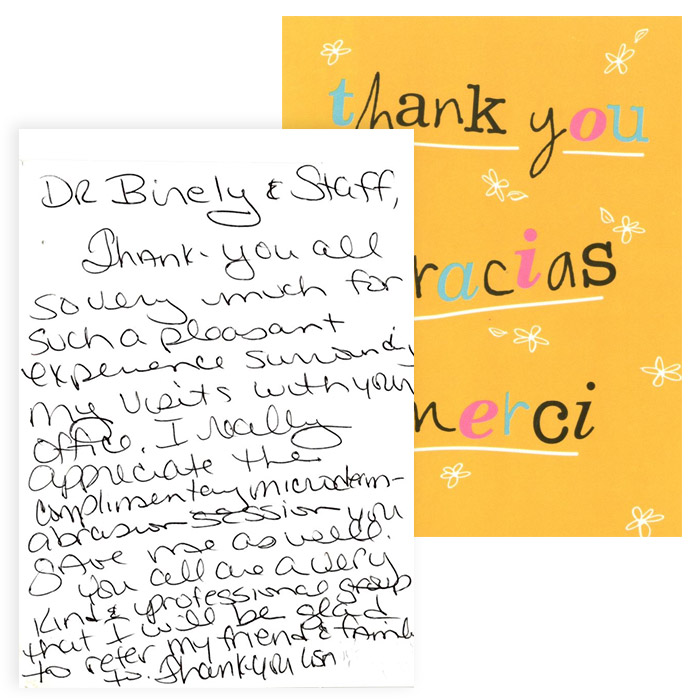 thank you
racias
merci
DR Binely & Staff,
Thank-you all
so very much for
such a pleasant
experience surroundi
my visits with your
office. I really
appreciate the
complimentary microderm-
abrasion session you
gave me as well.
you all are a very
kind & professional group
that I will be glad
to refer my friends & famil
to. Thank you